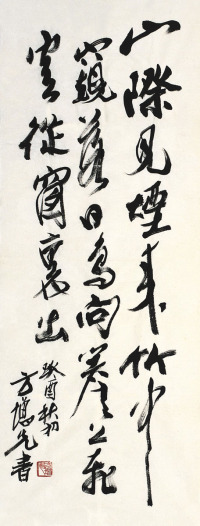 山際見煙來竹中
窺落日鳥向簷上飛
雲從窗裏出
癸酉秋初
方增先書